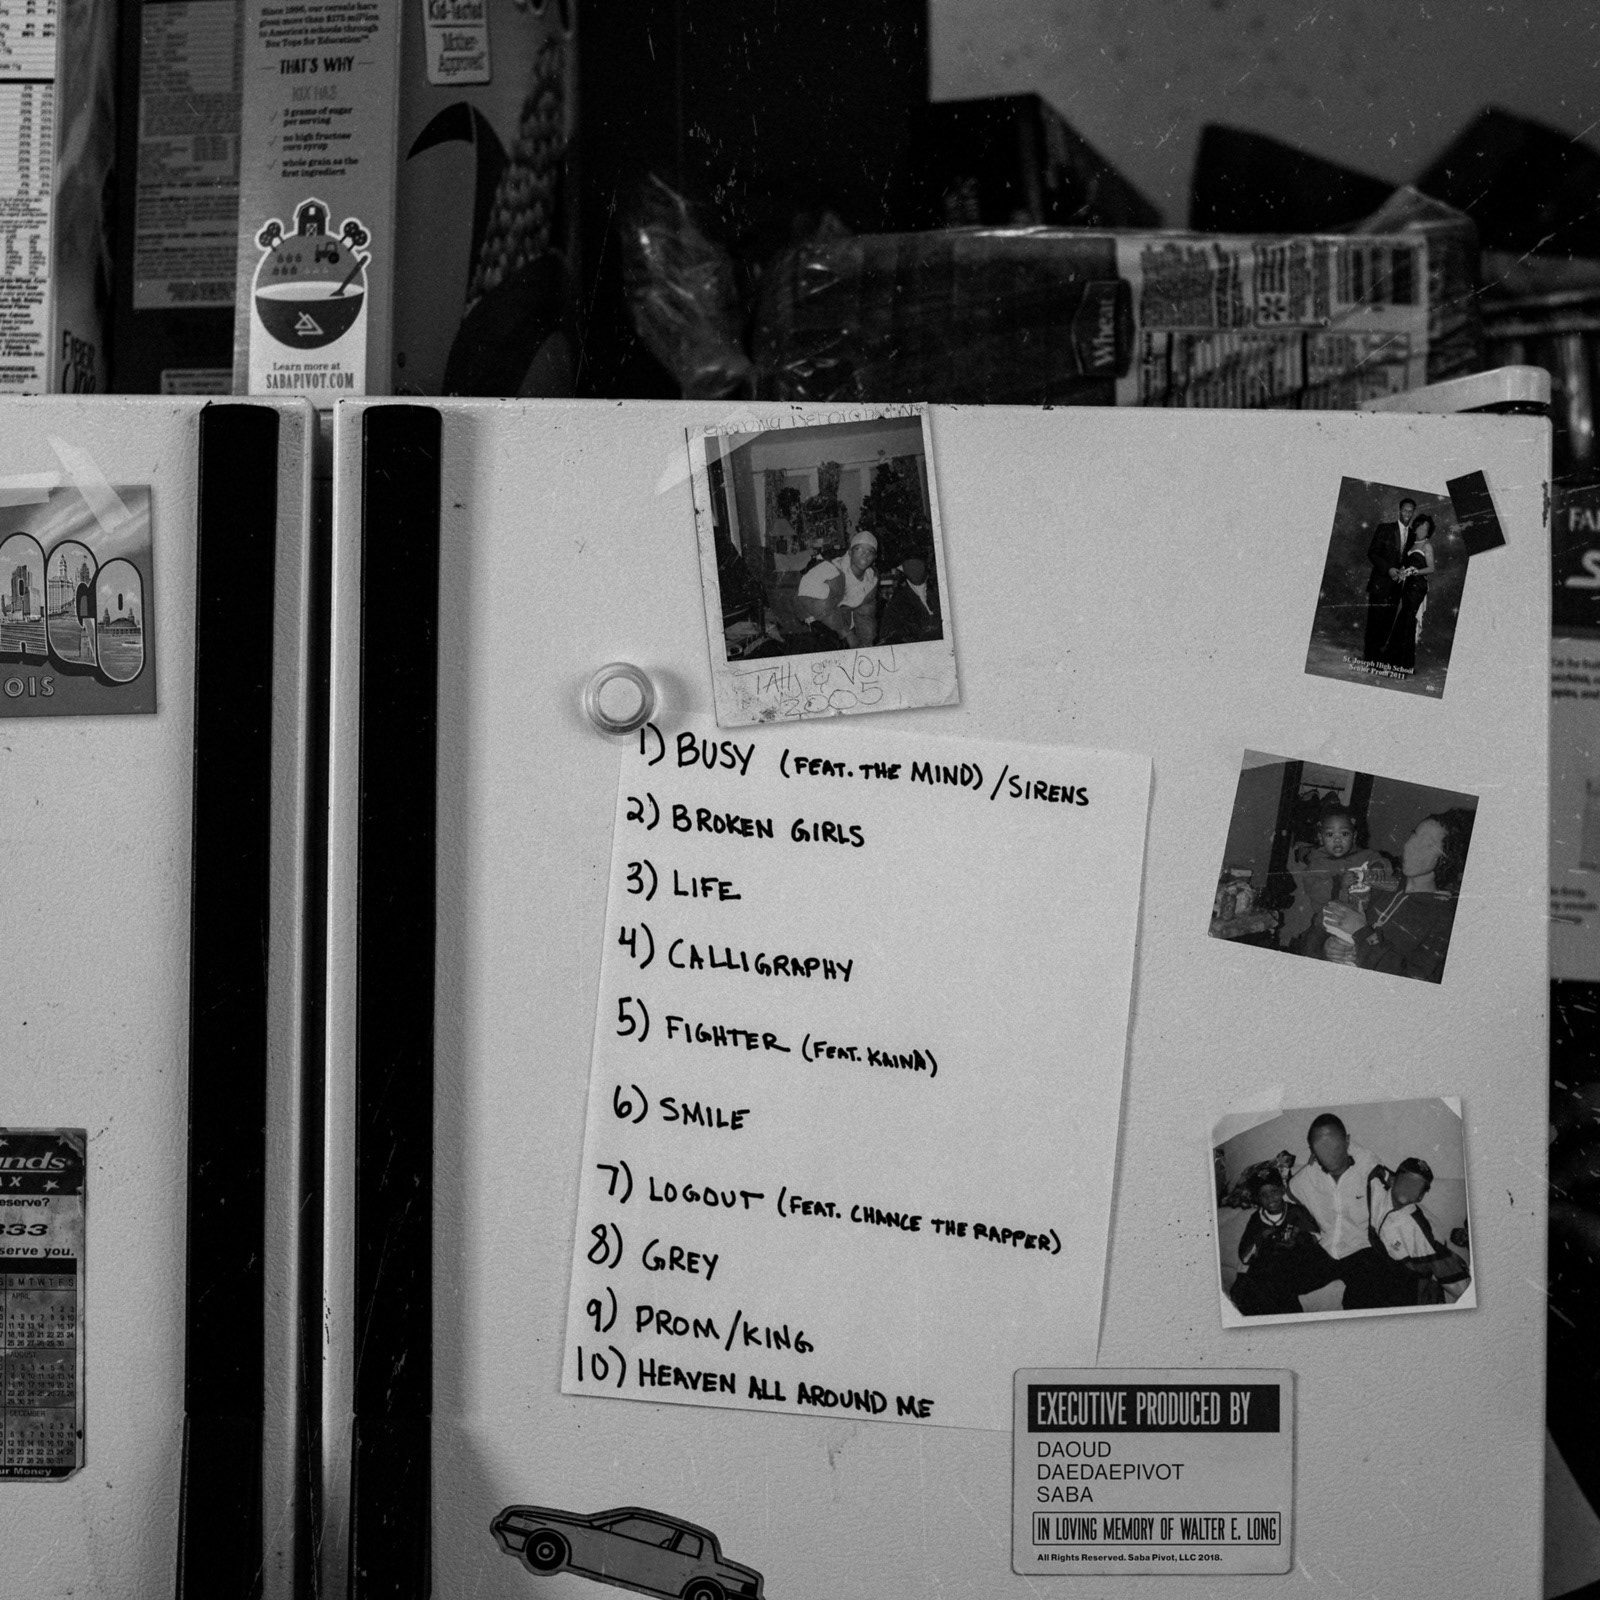 Since 1996, our cereals have
given more than $275 million
to America's schools through
Box Tops for Education™.
THAT'S WHY
KIX HAS
3 grams of sugar
per serving
no high fructose
corn syrup
whole grain as the
first ingredient
Learn more at
SABAPIVOT.COM
Kid-Tested
Mother-
Approved
FIBER
Wheat
AGO
OIS
TAHJ & VON
2005
St. Joseph High School
Senior Prom 2011
1) BUSY (FEAT. THE MIND) /SIRENS
2) BROKEN GIRLS
3) LIFE
4) CALLIGRAPHY
5) FIGHTER (FEAT. KAINA)
6) SMILE
7) LOGOUT (FEAT. CHANCE THE RAPPER)
8) GREY
9) PROM/KING
10) HEAVEN ALL AROUND ME
nds
AX
eserve?
333
serve you.
S M T W T F S
APRIL
AUGUST
DECEMBER
ur Money
EXECUTIVE PRODUCED BY
DAOUD
DAEDAEPIVOT
SABA
IN LOVING MEMORY OF WALTER E. LONG
All Rights Reserved. Saba Pivot, LLC 2018.